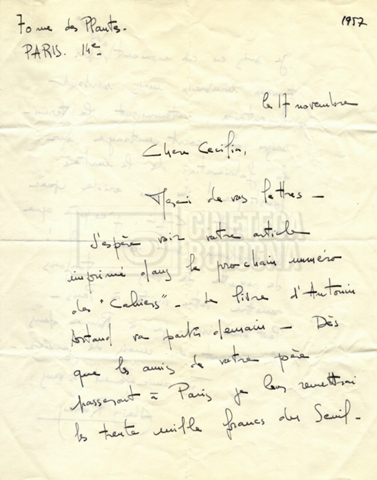 70 rue des Plantes.
1957
PARIS. 14e
le 17 novembre
Chère Cecilia,
Merci de vos lettres —
J'espère voir votre article
imprimé dans le prochain numéro
des "Cahiers" — Le livre d'Antonin
Artaud va partir demain — Dès
que les amis de votre père
passeront à Paris je leur remettrai
les trente mille francs du Seuil —
CINETECA
BOLOGNA